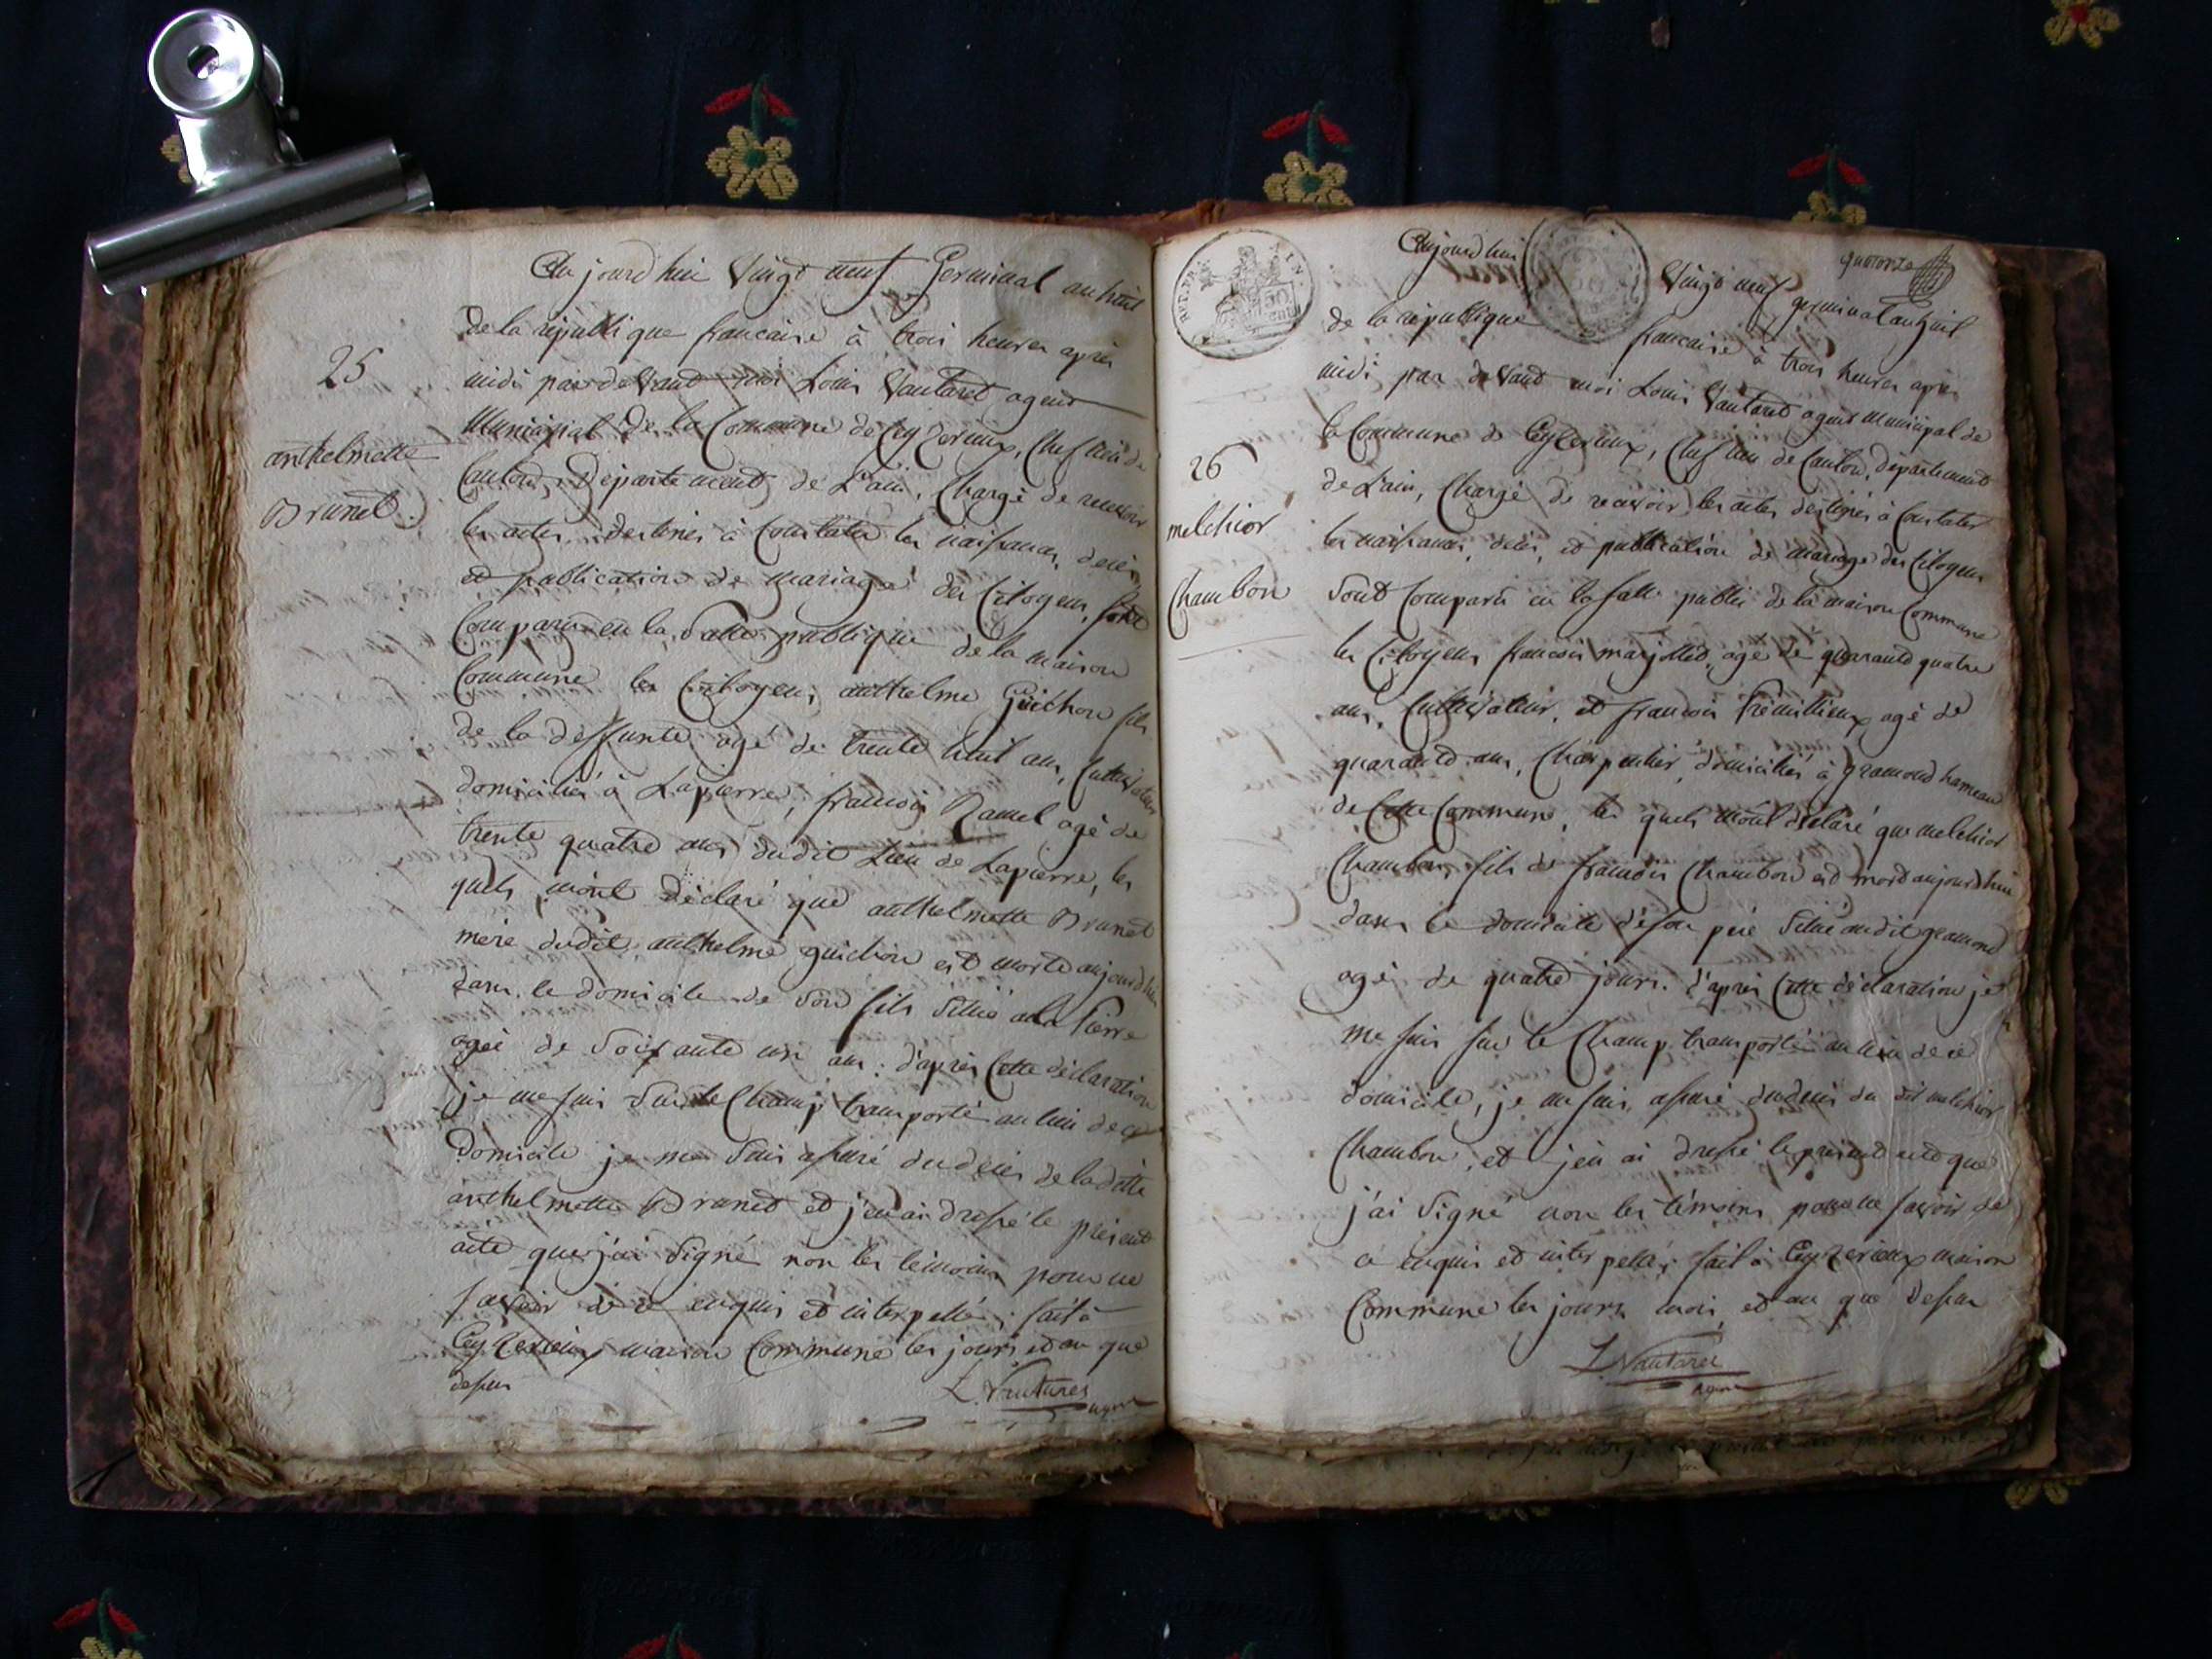 Au jourd'hui Vingt neuf Germinal an huit
de la république francaise à trois heures après
midi par devant moi Louis Vautaret agent
Municipal de la Commune de Ceyzerieux, Chef lieu de
25
anthelmette
Brunet
Canton, Département de L'ain, Chargé de recevoir
les actes destinés à Constater les naissances, decès
et publication de mariage des Citoyens, sont
Comparu en la Salle publique de la maison
Commune les Citoyens, anthelme Guichon fils
de la deffunte agé de trente huit ans, Cultivateur
domicilié à Lapierre, francois Ramel agé de
trente quatre ans dudit Lieu de Lapierre, les
quels m'ont déclaré que anthelmette Brunet
mère dudit anthelme guichon est morte aujourd'hui
dans le domicile de Son fils Situé à la Pierre
agée de Soixante ans. d'après Cette déclaration
je me suis Sur le Champ transporté au lieu de ce
Domicile je me Suis assuré du decès de la ditte
anthelmette Brunet et j'en ai dressé le présent
acte que j'ai Signé non les témoins pour ne
savoir de ce enquis et interpellé; fait à
Ceyzerieux maison Commune les jours et an que
dessus
L. Vautaret
agent
quatorze
Aujourd'hui Vingt neuf germinal an huit
de la république francaise à trois heures après
midi, par devant moi Louis Vautaret agent Municipal de
la Commune de Ceyzerieux, Chef lieu de Canton, département
26
melchior
Chambon
de L'ain, Chargé de recevoir les actes destinés à Constater
les naissances, decès, et publication de mariage des Citoyens
Sont Comparu en la salle public de la maison Commune
les Citoyens francois marjollet, agé de quarante quatre
ans, Cultivateur, et francois Trémillieux agé de
quarante ans, Charpentier, domiciliés à gramond hameau
de Cette Commune, les quels m'ont déclaré que melchior
Chambon, fils de francois Chambon est mort aujourd'hui
dans le domicile de son père Situé audit gramond
agé de quatre jours. d'après Cette déclaration je
me suis sur le Champ transporté au lieu de ce
domicile, je me suis assuré du decès du dit melchior
Chambon, et j'en ai dressé le présent acte que
j'ai Signé non les témoins pour ne savoir de
ce enquis et interpellé; fait à Ceyzerieux maison
Commune les jours, mois, et an que dessus
L. Vautaret
agent